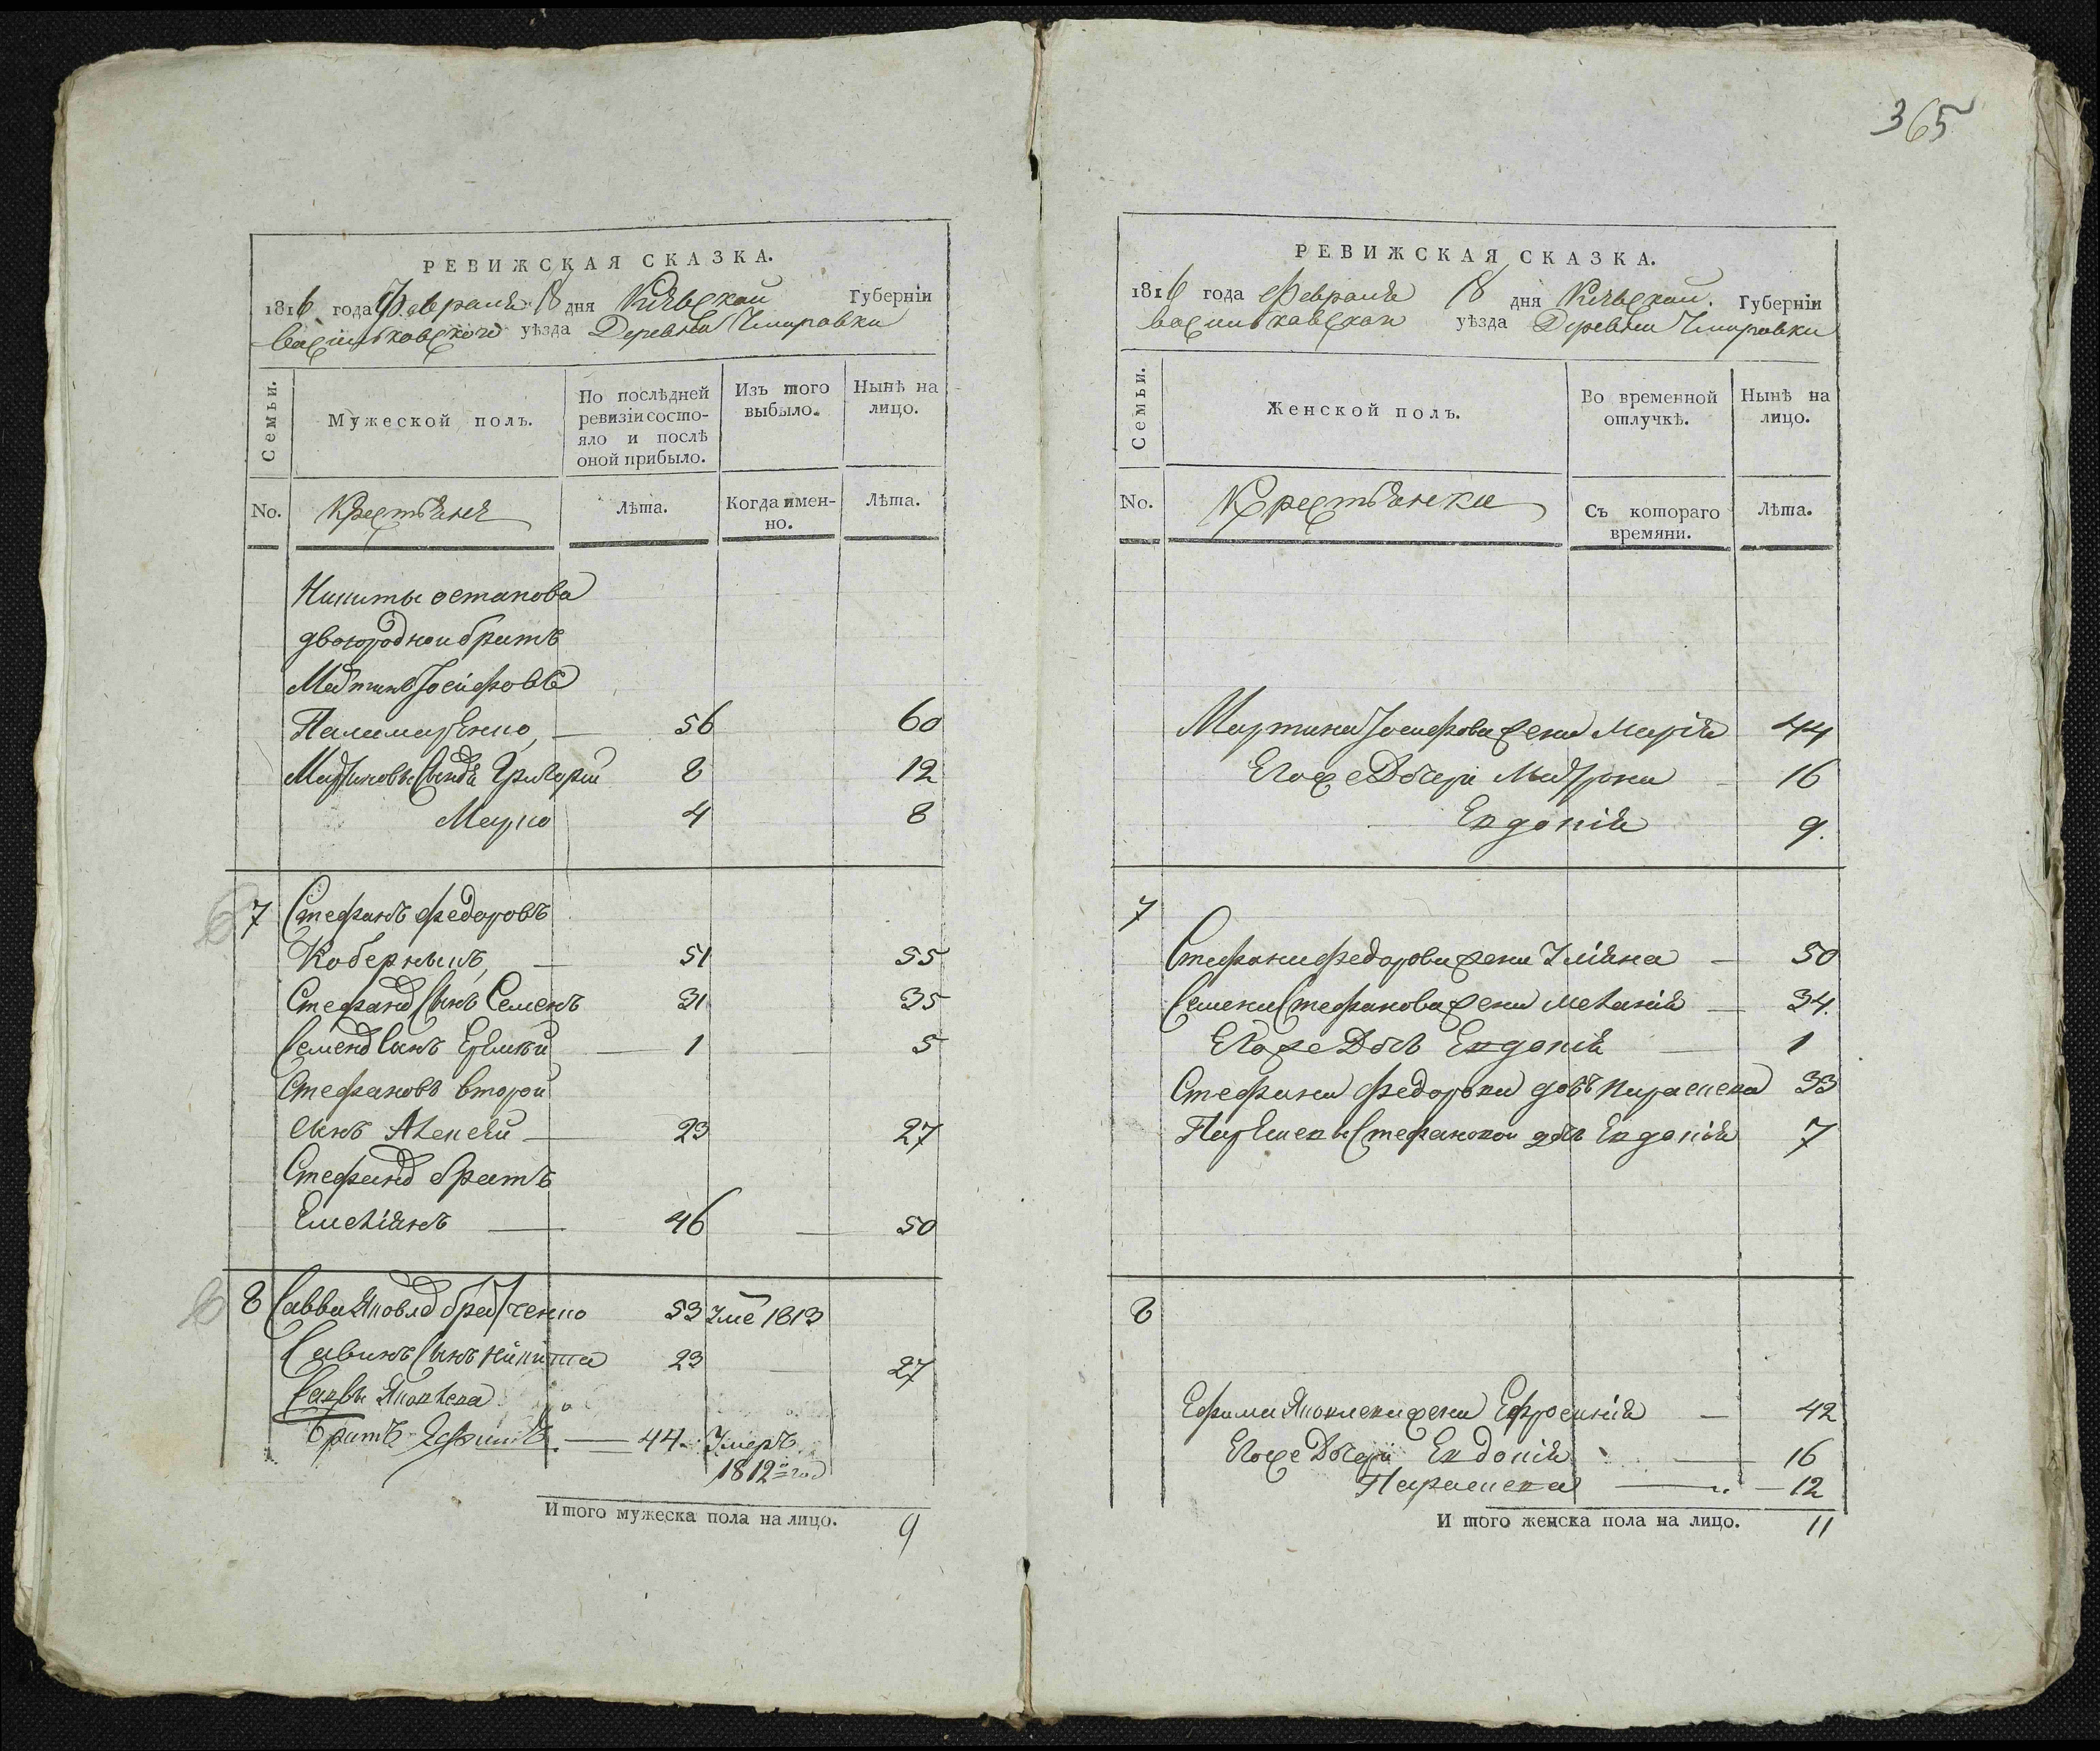 365
РЕВИЖСКАЯ СКАЗКА.
1816 года Февраля 18 дня Кіевской Губерніи
Васильковского уѣзда Деревни
Семьи.
Мужеской полъ.
По послѣдней ревизіи состо-
яло и послѣ
оной прибыло.
Изъ того
выбыло.
Нынѣ на
лицо.
No.
Крестьяне
Лѣта.
Когда имен-
но.
Лѣта.
Никиты остапова
двоюродной братъ
Мартинъ Іосифовъ
Паламаренко — 56 60
Мартиновы Сыновя Григорий 8 12
Марко 4 8
7 Стефанъ федоровъ
Коберныкъ — 51 55
Стефано Сынъ Семенъ 31 35
Семено Сынъ Еремѣй — 1 — 5
Стефановъ второй
сынъ Алексѣй — 23 27
Стефано братъ
Емеліянъ — 46 — 50
8 Савва Яковл 53 Уме 1813
Савинъ Сынъ Никита 23 — 27
Саввы Яковлева
братъ Ефимъ. — 44. Умеръ
1812 год
Итого мужеска пола на лицо. 9
РЕВИЖСКАЯ СКАЗКА.
1816 года Февраля 18 дня Кіевской. Губерніи
Васильковской уѣзда Деревни
Семьи.
Женской полъ.
Во временной
отлучкѣ.
Нынѣ на
лицо.
No.
Крестьянки
Съ котораго
времяни.
Лѣта.
Мартина Іосифова жена Марія 44
Егоже Дочери Матрона — 16
Евдокія 9.
7
Стефана федорова жена Уліяна — 50
Семена Стефанова жена Меланія — 34.
Егоже Дочь Евдокія — 1
Стефана федорова дочь Параскева 33
Параскевы Стефановой дочь Евдокія 7
8
Ефима Яковлева жена Ефросинія — 42
Егоже Дочери Евдокія — 16
Параскева — 12
И того женска пола на лицо. 11